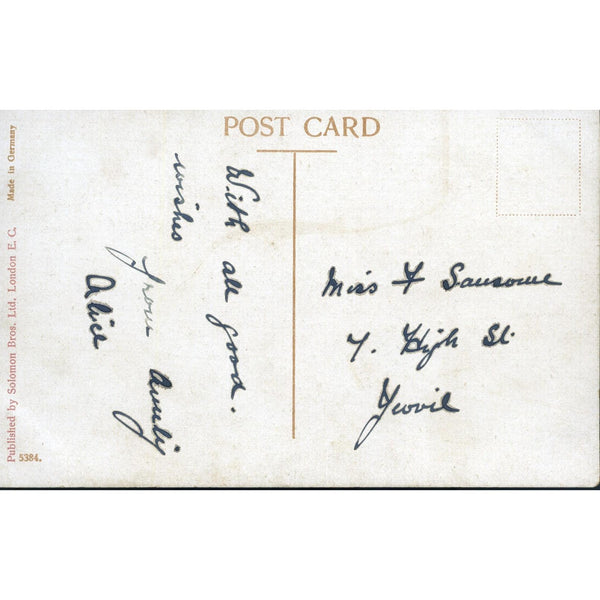 POST CARD
With all good.
wishes
from Aunty
Alice
Miss F Sansome
7. High St.
Yeovil
Made in Germany
Published by Solomon Bros. Ltd. London E. C.
5384.